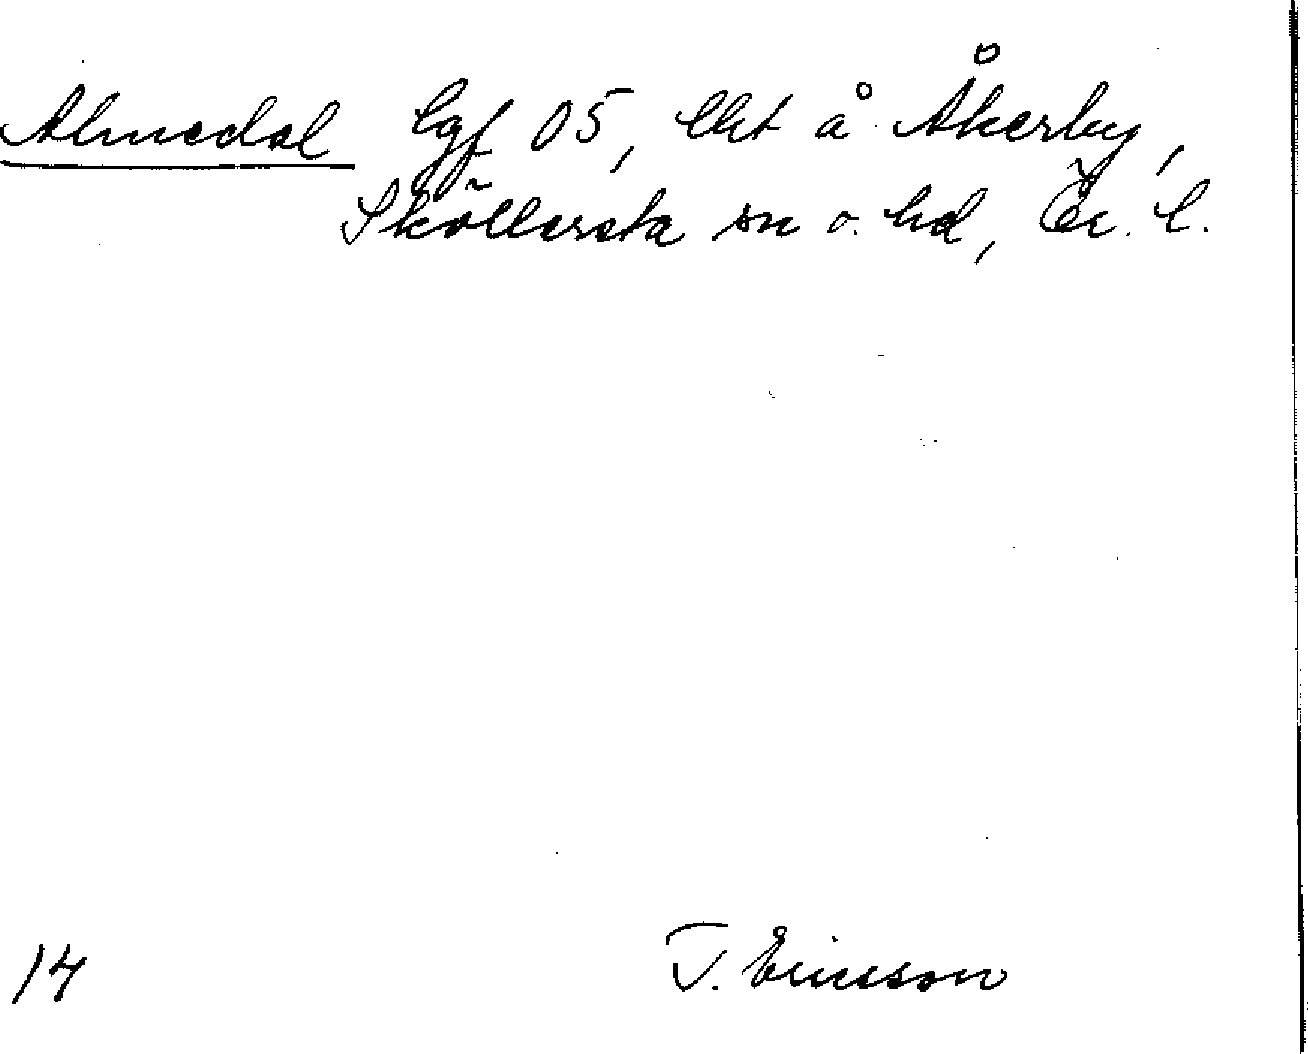 Almedal lgf 05, lht å Åkerby,
Sköllersta sn o. hd, Ör. l.
14 T. Ericsson